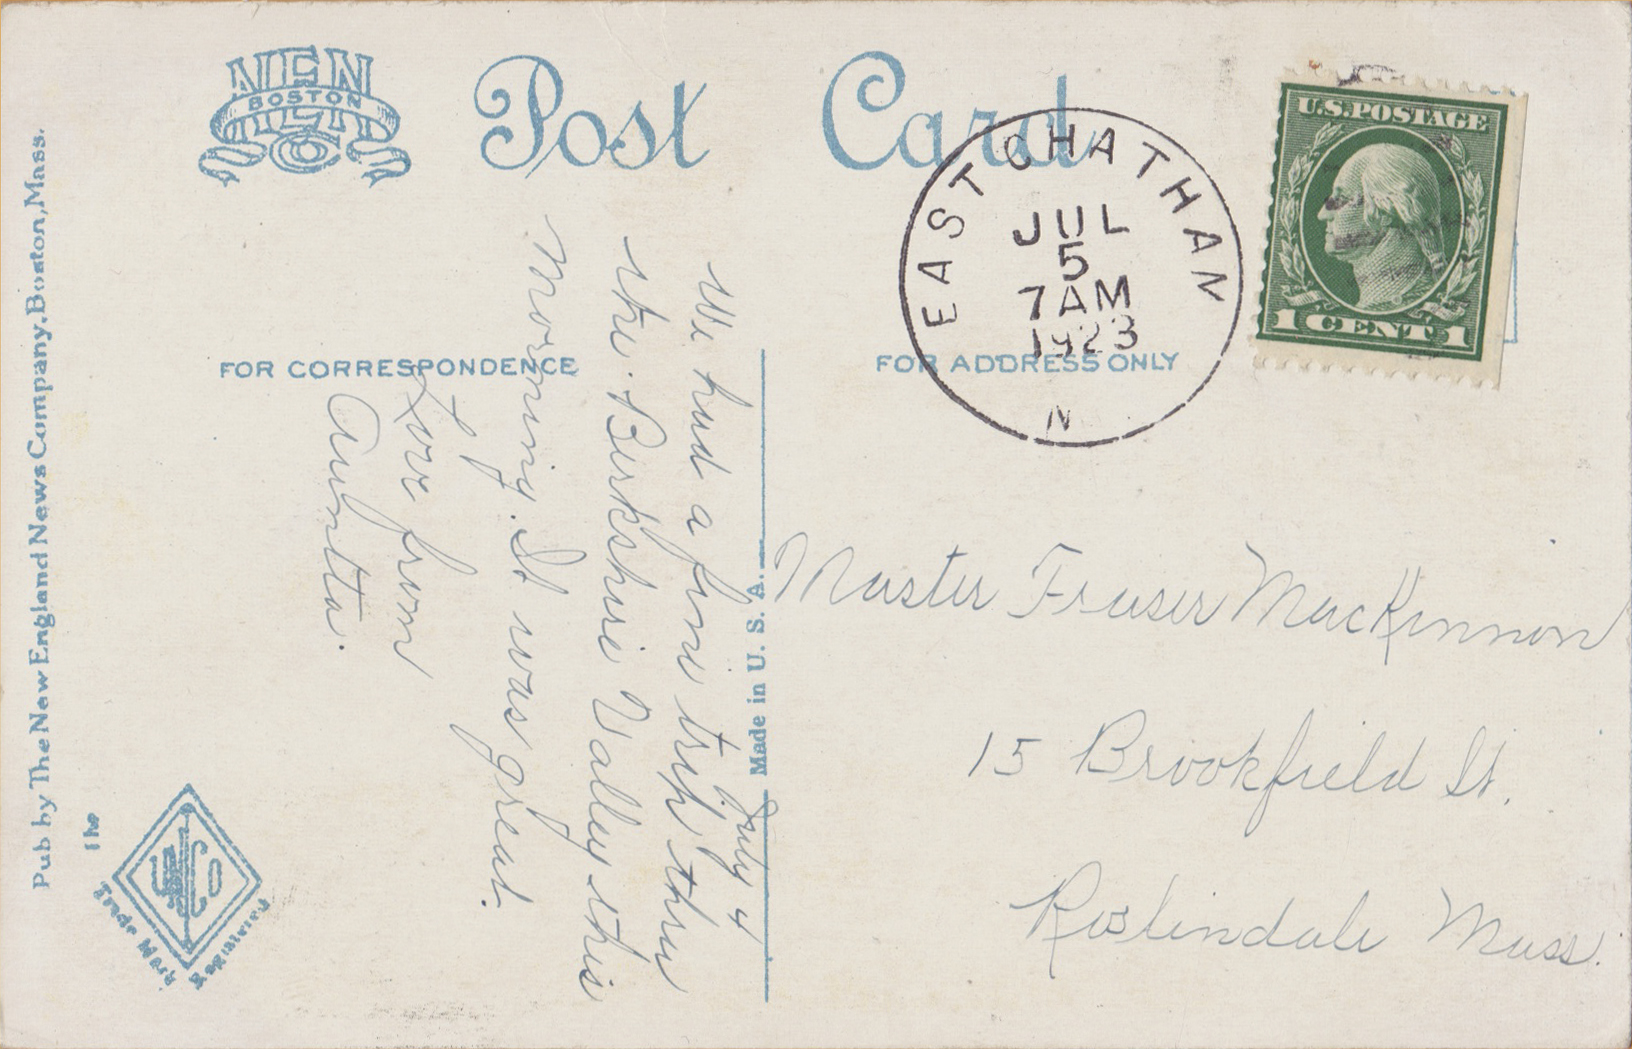 NEN
BOSTON
Post Card
EAST CHATHAN
JUL
5
7 AM
1923
N
U.S. POSTAGE
1 CENT 1
FOR CORRESPONDENCE
FOR ADDRESS ONLY
July 4
We had a fine trip thru
the Berkshire Valley this
morning. It was great.
Love from
Aunta.
Master Fraser MacKinnon
15 Brookfield St.
Roslindale Mass.
Made in U. S. A.
Pub by The New England News Company, Boston, Mass.
The
Co
Trade Mark Registered